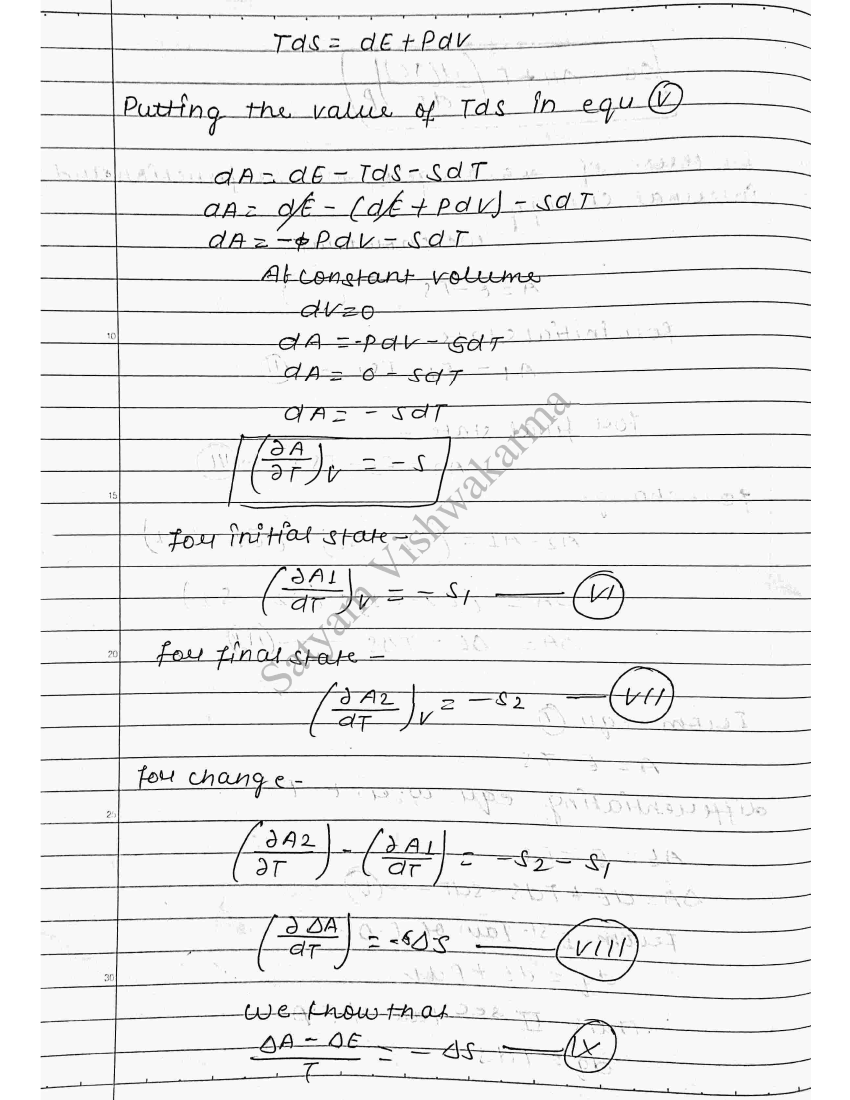 TdS = dE + PdV
Putting the value of Tds in equ (V)
dA = dE - TdS - SdT
dA = dE - (dE + PdV) - SdT
dA = - PdV - SdT
At constant volume
dV=0
10
dA = -PdV - SdT
dA = 0 - SdT
dA = - SdT
(∂A/∂T)V = -S
15
for initial state -
(∂A1/dT)V = - S1 —— (VI)
20
for final state -
(∂A2/dT)V = -S2 —— (VII)
for change -
25
(∂A2/∂T) - (∂A1/dT) = -S2 - S1
(∂ΔA/dT) = -ΔS —— (VIII)
30
we know that
ΔA - ΔE / T = - ΔS —— (IX)
Satyam Vishwakarma